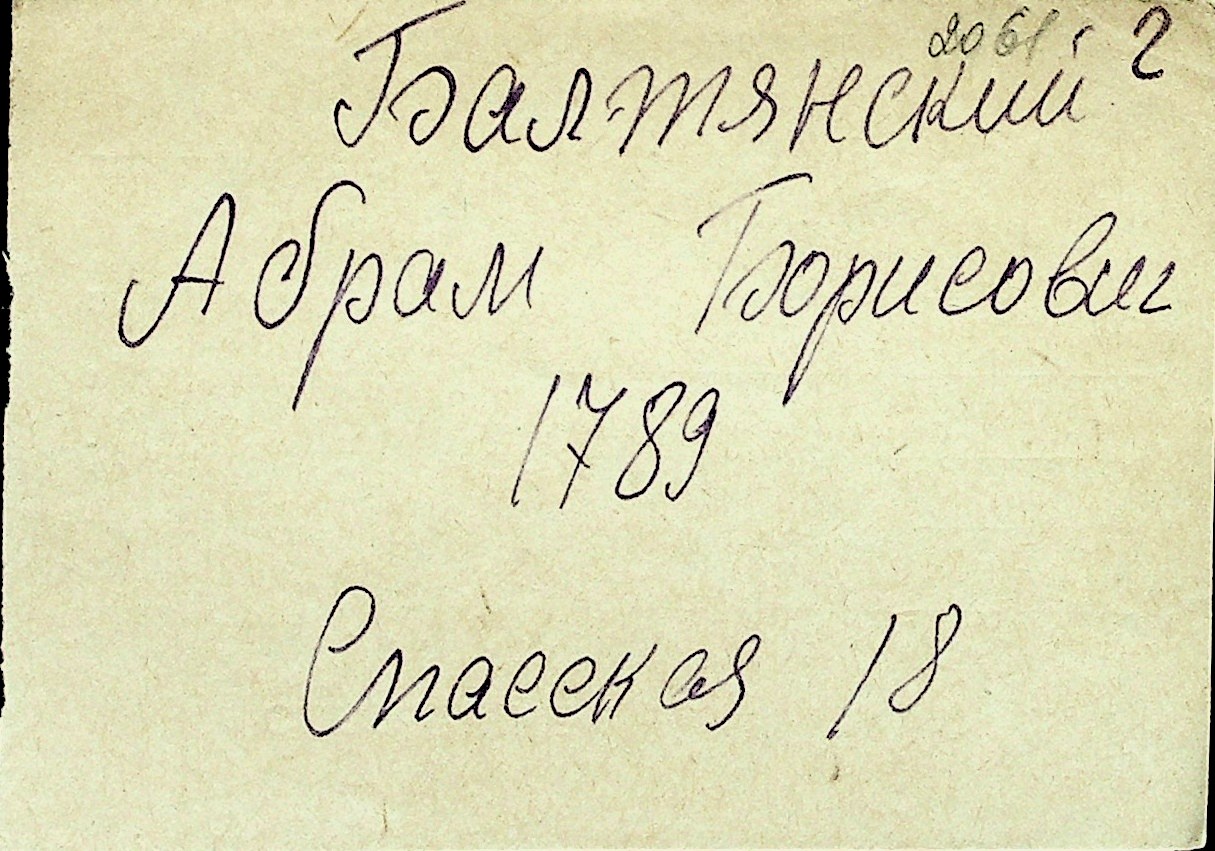 2061 2
Балтянский
Абрам Борисович
1789
Спасская 18